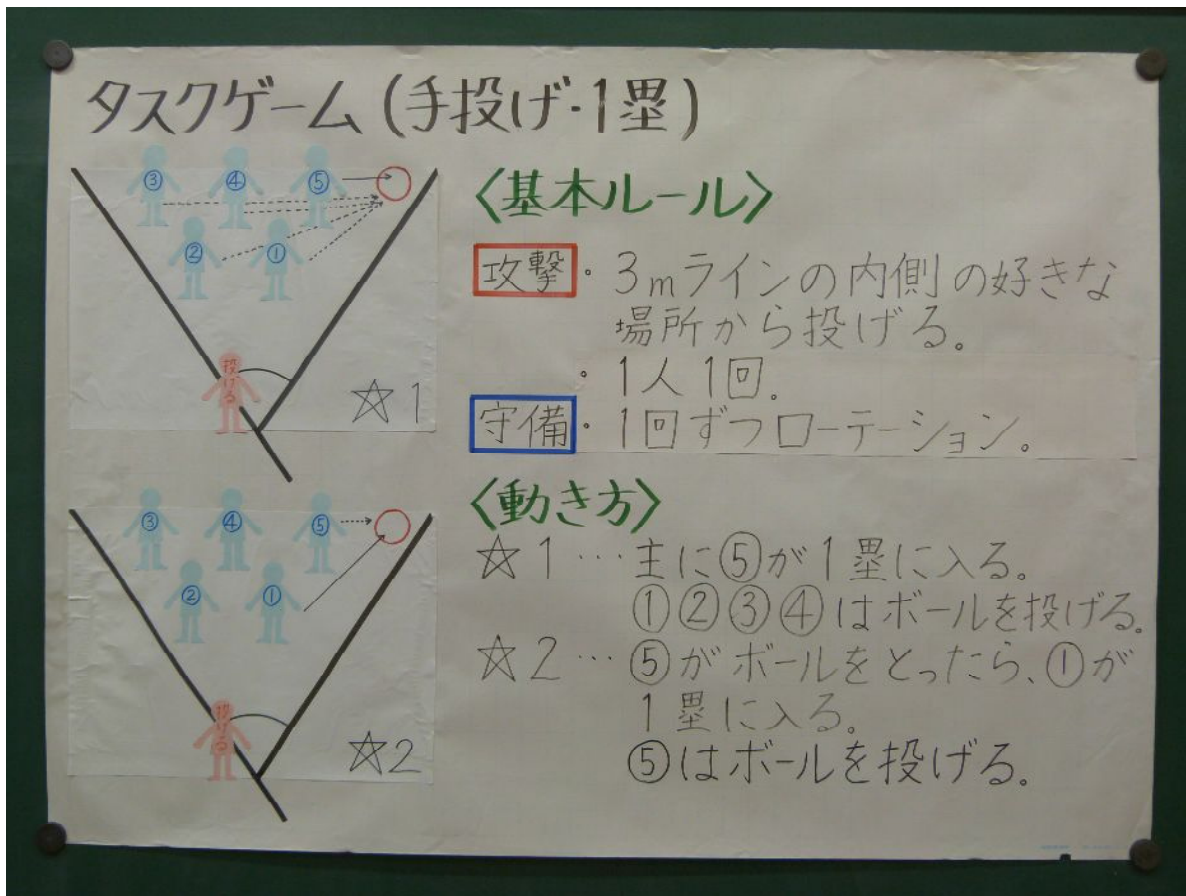 タスクゲーム(手投げ・1塁)
③ ④ ⑤
② ①
投げる
☆1
〈基本ルール〉
攻撃・3mラインの内側の好きな
場所から投げる。
・1人1回.
守備・1回ずつローテーション。
③ ④ ⑤
② ①
投げる
☆2
〈動き方〉
☆1…主に⑤が1塁に入る。
①②③④はボールを投げる。
☆2…⑤がボールをとったら、①が
1塁に入る。
⑤はボールを投げる。